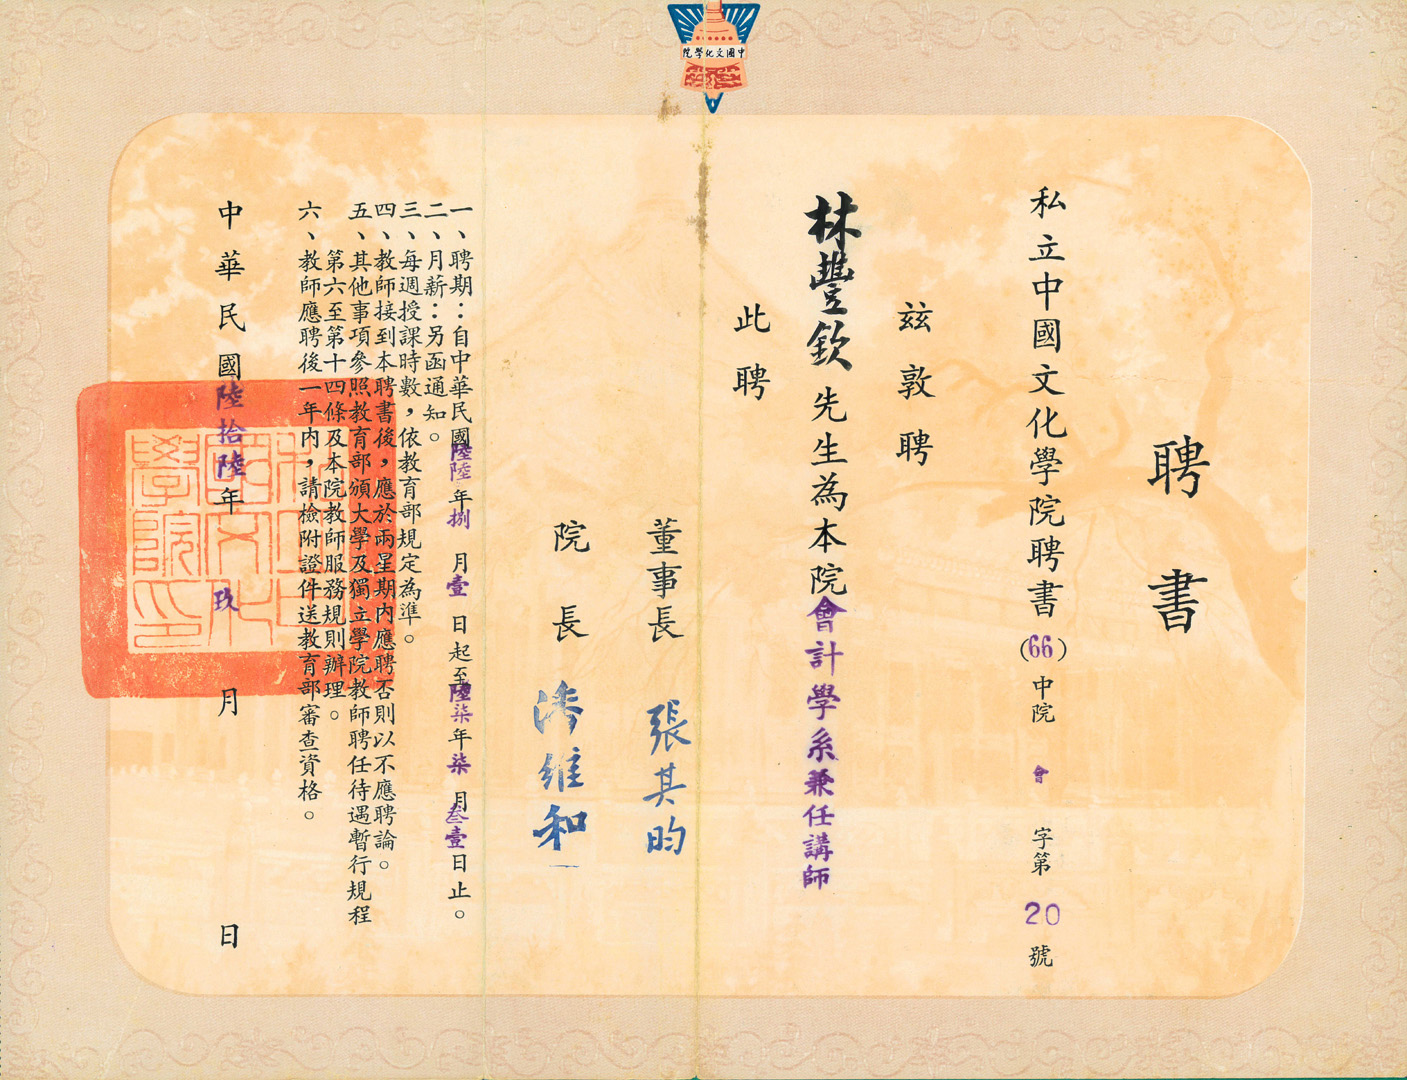 中國文化學院
聘書
私立中國文化學院聘書(66)中院會字第20號
茲敦聘
林豐欽先生為本院會計學系兼任講師
此聘
董事長 張其昀
院長 潘維和
一、聘期：自中華民國陸陸年捌月壹日起至陸柒年柒月叁壹日止。
二、月薪：另函通知。
三、每週授課時數，依教育部規定為準。
四、教師接到本聘書後，應於兩星期內應聘否則以不應聘論。
五、其他事項參照教育部頒大學及獨立學院教師聘任待遇暫行規程
第六至第十四條及本院教師服務規則辦理。
六、教師應聘後一年內，請檢附證件送教育部審查資格。
中華民國陸拾陸年玖月日
私立中國文化學院印